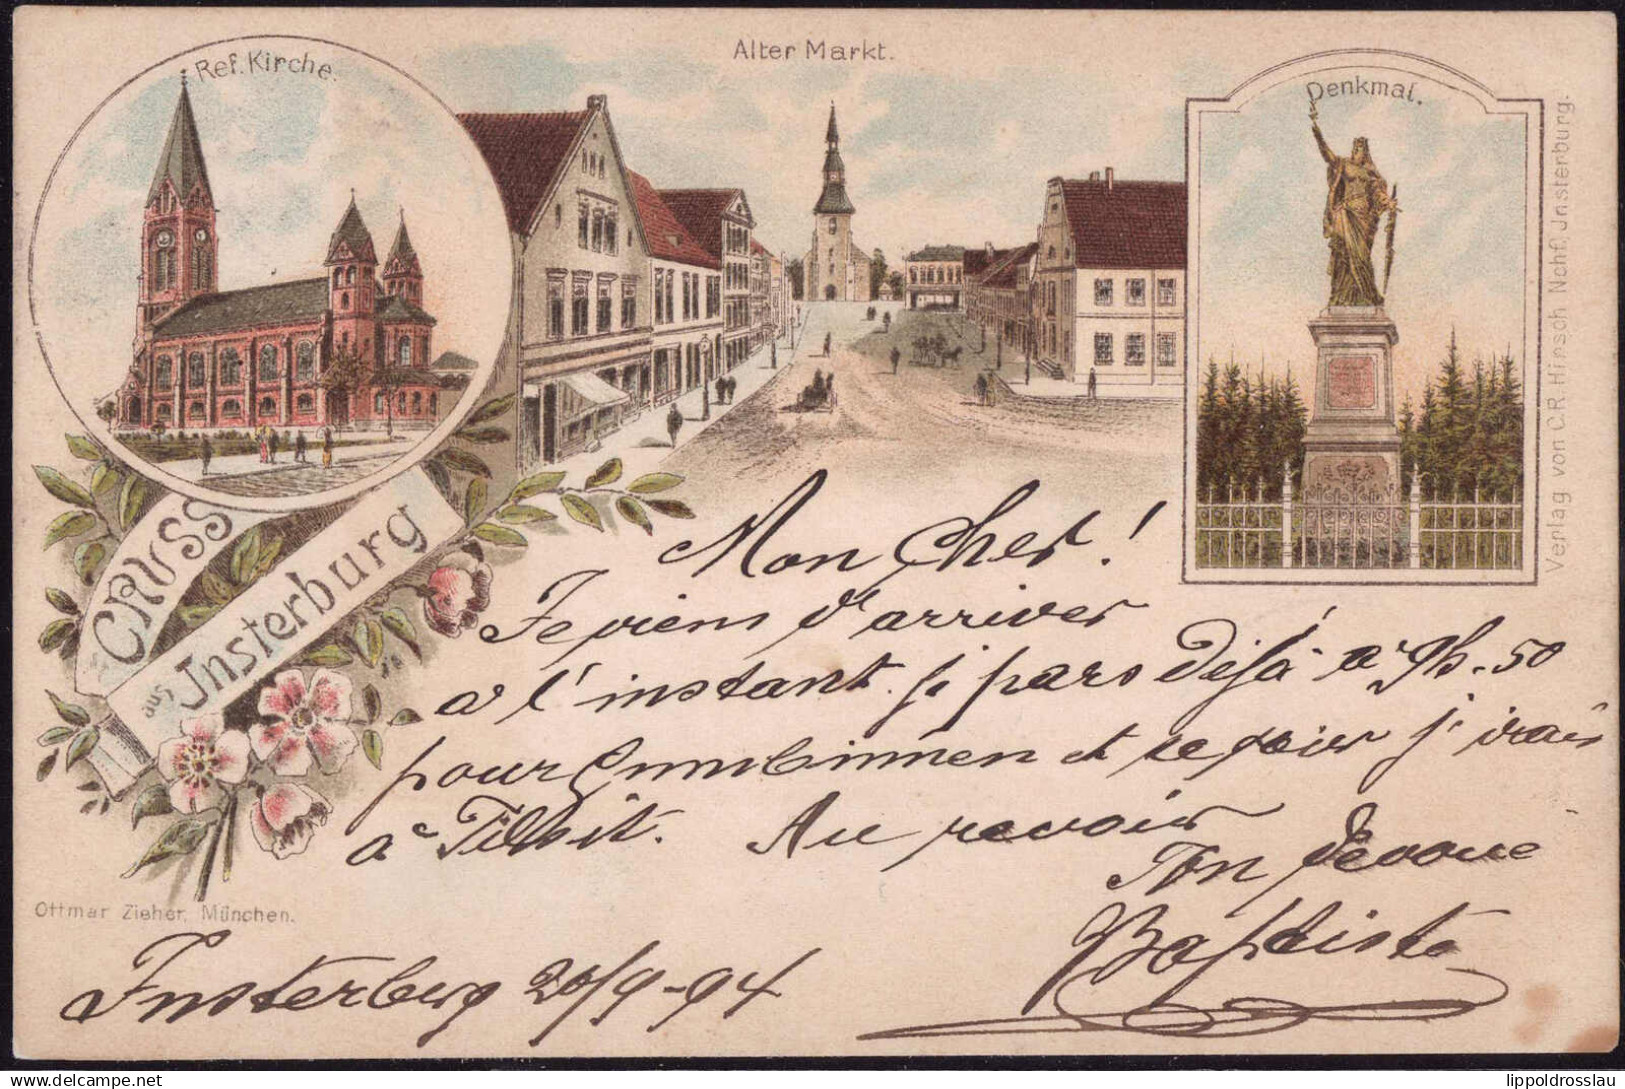 Ref. Kirche.
Alter Markt.
Denkmal.
Verlag von C.R. Hinsch Nchfl. Insterburg.
GRUSS
aus Insterburg
Mon Cher!
Je viens d'arriver
a l'instant. je pars Déjà a 9h.50
pour Gumbinnen et ce soir j'irais
a Tilsit. Au revoir
Ton Devoue
Baptiste
Ottmar Zieher, München.
Insterburg 20/9-94
lippoldrosslau